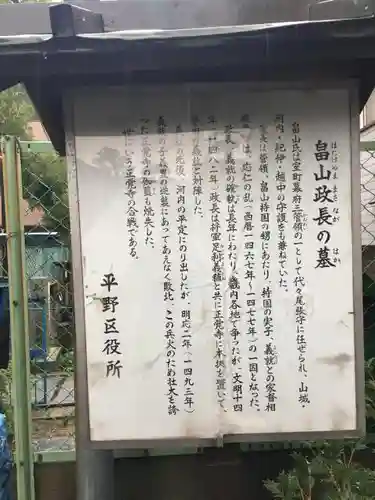 畠山政長の墓
はたけやま まさ なが はか
畠山氏は室町幕府三管領の一として代々尾張守に任ぜられ、山城・
河内・紀伊・越中の守護をも兼ねていた。
政長は管領、畠山持国の甥にあたり、持国の実子、義就との家督相
続争いは、応仁の乱(西暦一四六七年〜一四七七年)の一因となった。
政長、義就の確執は長年にわたり、畿内各地で争ったが、文明十四
年(一四八二年)政長は将軍足利義稙と共に正覚寺に本拠を置いて、
義就と対陣した。
義就の死後、河内の平定にのり出したが、明応二年(一四九三年)
義就の子義豊の逆襲にあってあえなく敗北、この兵火のため壮大を誇
った正覚寺の伽藍も焼失した。
世にいう正覚寺の合戦である。
平野区役所